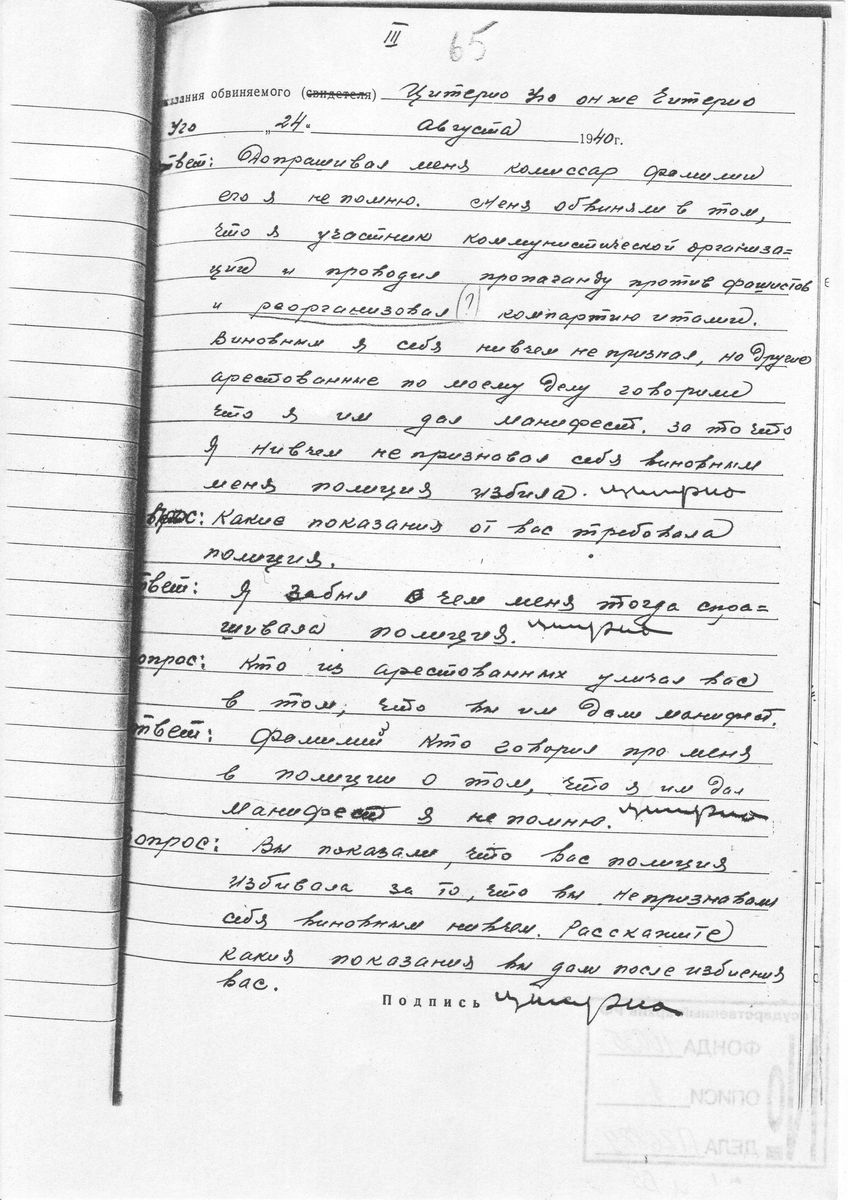 III
65
казания обвиняемого (свидетеля) Цитерио Уго он же Читерио
Уго „24“ Августа 1940 г.
твет: Допрашивал меня комиссар фамилии
его я не помню. Меня обвиняли в том,
что я участник коммунистической организа=
ции и проводил пропаганду против фашистов
и реорганизовал (?) компартию италии.
Виновным я себя нивчем не признал, но другие
арестованные по моему делу говорили
что я им дал манифест. за то что
Я нивчем не признавал себя виновным
меня полиция избила. Цитерио
прос: Какие показания от вас требовала
полиция.
твет: Я забыл о чем меня тогда спра=
шивала полиция. Цитерио
опрос: Кто из арестованных уличал вас
в том, что вы им дали манифест.
твет: Фамилий кто говорил про меня
в полиции о том, что я им дал
манифест я не помню. Цитерио
Вопрос: Вы показали, что вас полиция
избивала за то, что вы непризнавали
себя виновным нивчем. Расскажите
какия показания вы дали после избиения
вас.
Подпись Цитерио
осударственный архив РФ
ФОНДА
ОПИСИ
ДЕЛА
№